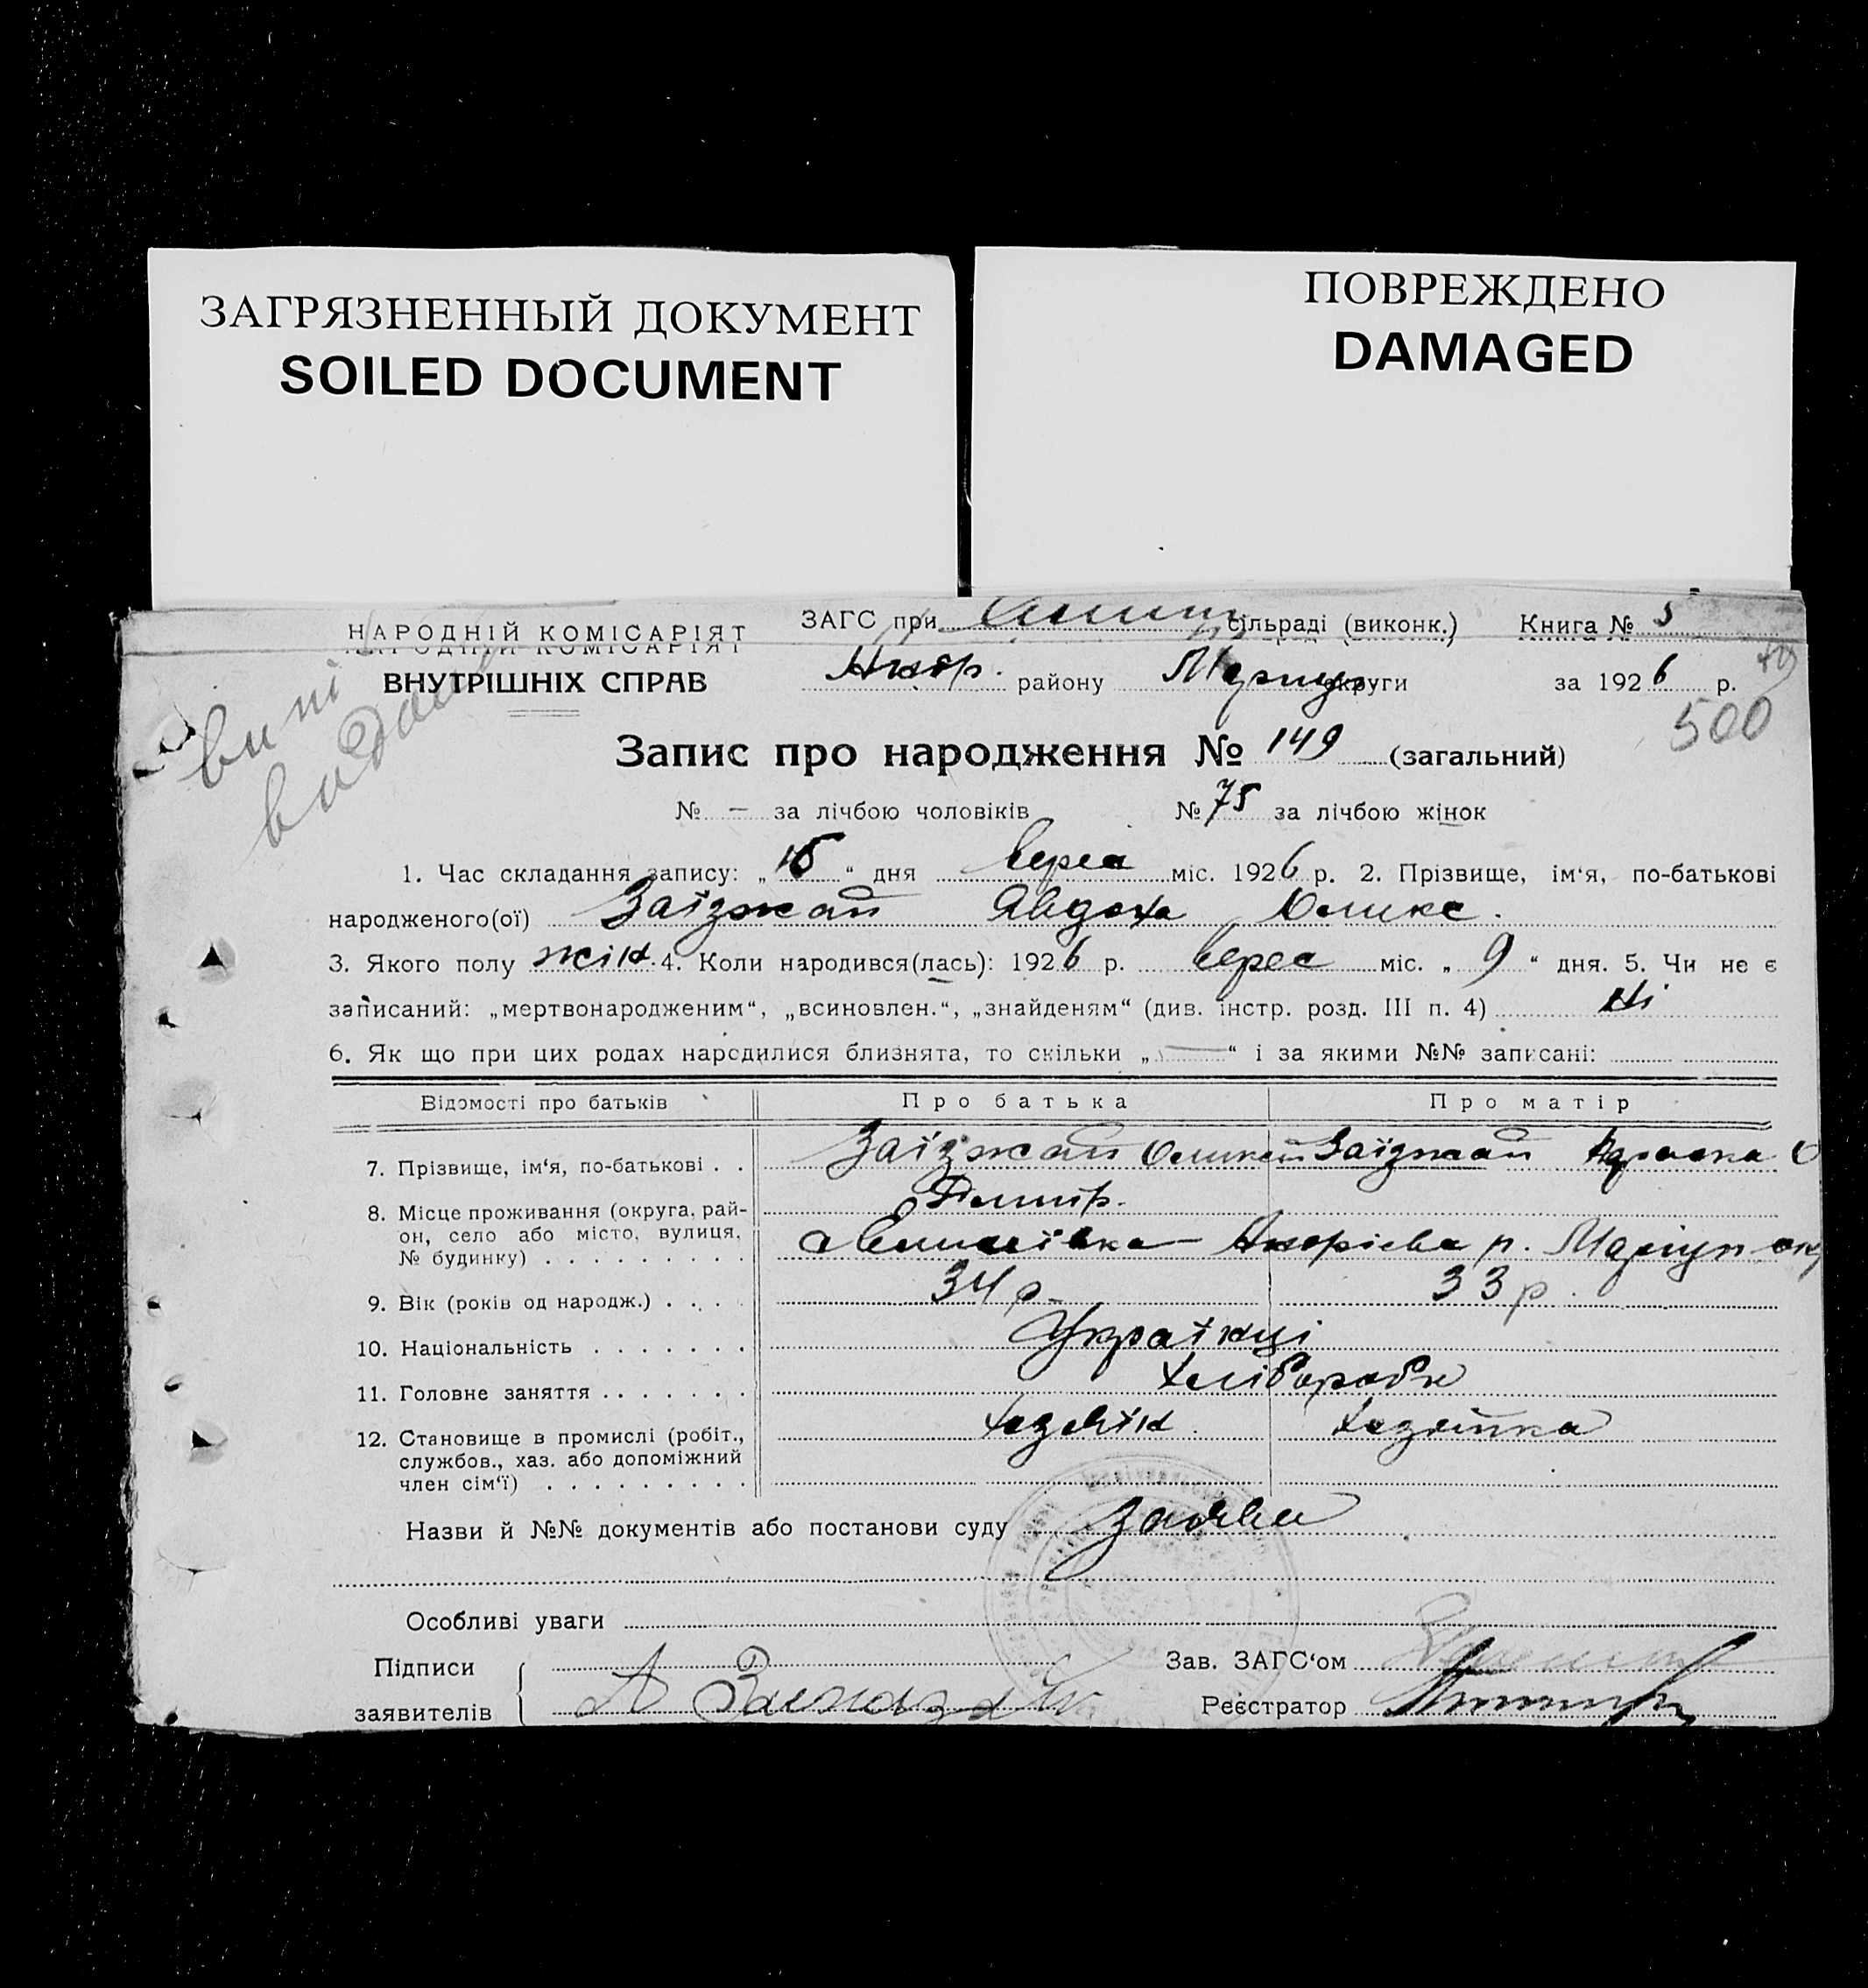 ЗАГРЯЗНЕННЫЙ ДОКУМЕНТ
SOILED DOCUMENT
ПОВРЕЖДЕНО
DAMAGED
НАРОДНІЙ КОМІСАРІЯТ
ВНУТРІШНІХ СПРАВ
ЗАГС при сільраді (виконк.) Книга № 5
району округи за 1926 р.
500
Запис про народження № 149 (загальний)
№ — за лічбою чоловіків № 75 за лічбою жінок
1. Час складання запису: „15“ дня верес міс. 1926 р. 2. Прізвище, ім‘я, по-батькові
народженого(ої) Заїзжай Явдоха
3. Якого полу жін. 4. Коли народився(лась): 1926 р. верес міс. „ 9 “ дня. 5. Чи не є
записаний: „мертвонародженим“, „всиновлен.“, „знайденям“ (див. інстр. розд. III п. 4) Ні
6. Як що при цих родах народилися близнята, то скільки „—“ і за якими №№ записані:
Відомості про батьків Про батька Про матір
7. Прізвище, ім‘я, по-батькові . . Заїзжай Заїзжай
8. Місце проживання (округа, рай-
он, село або місто, вулиця,
№ будинку) . . . . . . . . . Андрієва р. Маріуп
9. Вік (років од народж.) . . . . 34 р. 33 р.
10. Національність . . . . . . . Українці
11. Головне заняття . . . . . . . Хлібороби
12. Становище в промислі (робіт.,
службов., хаз. або допоміжний
член сім‘ї) . . . . . . . . . Хазяїн Хазяйка
Назви й №№ документів або постанови суду Заява
Особливі уваги
Підписи
заявителів
Зав. ЗАГС‘ом
Реєстратор